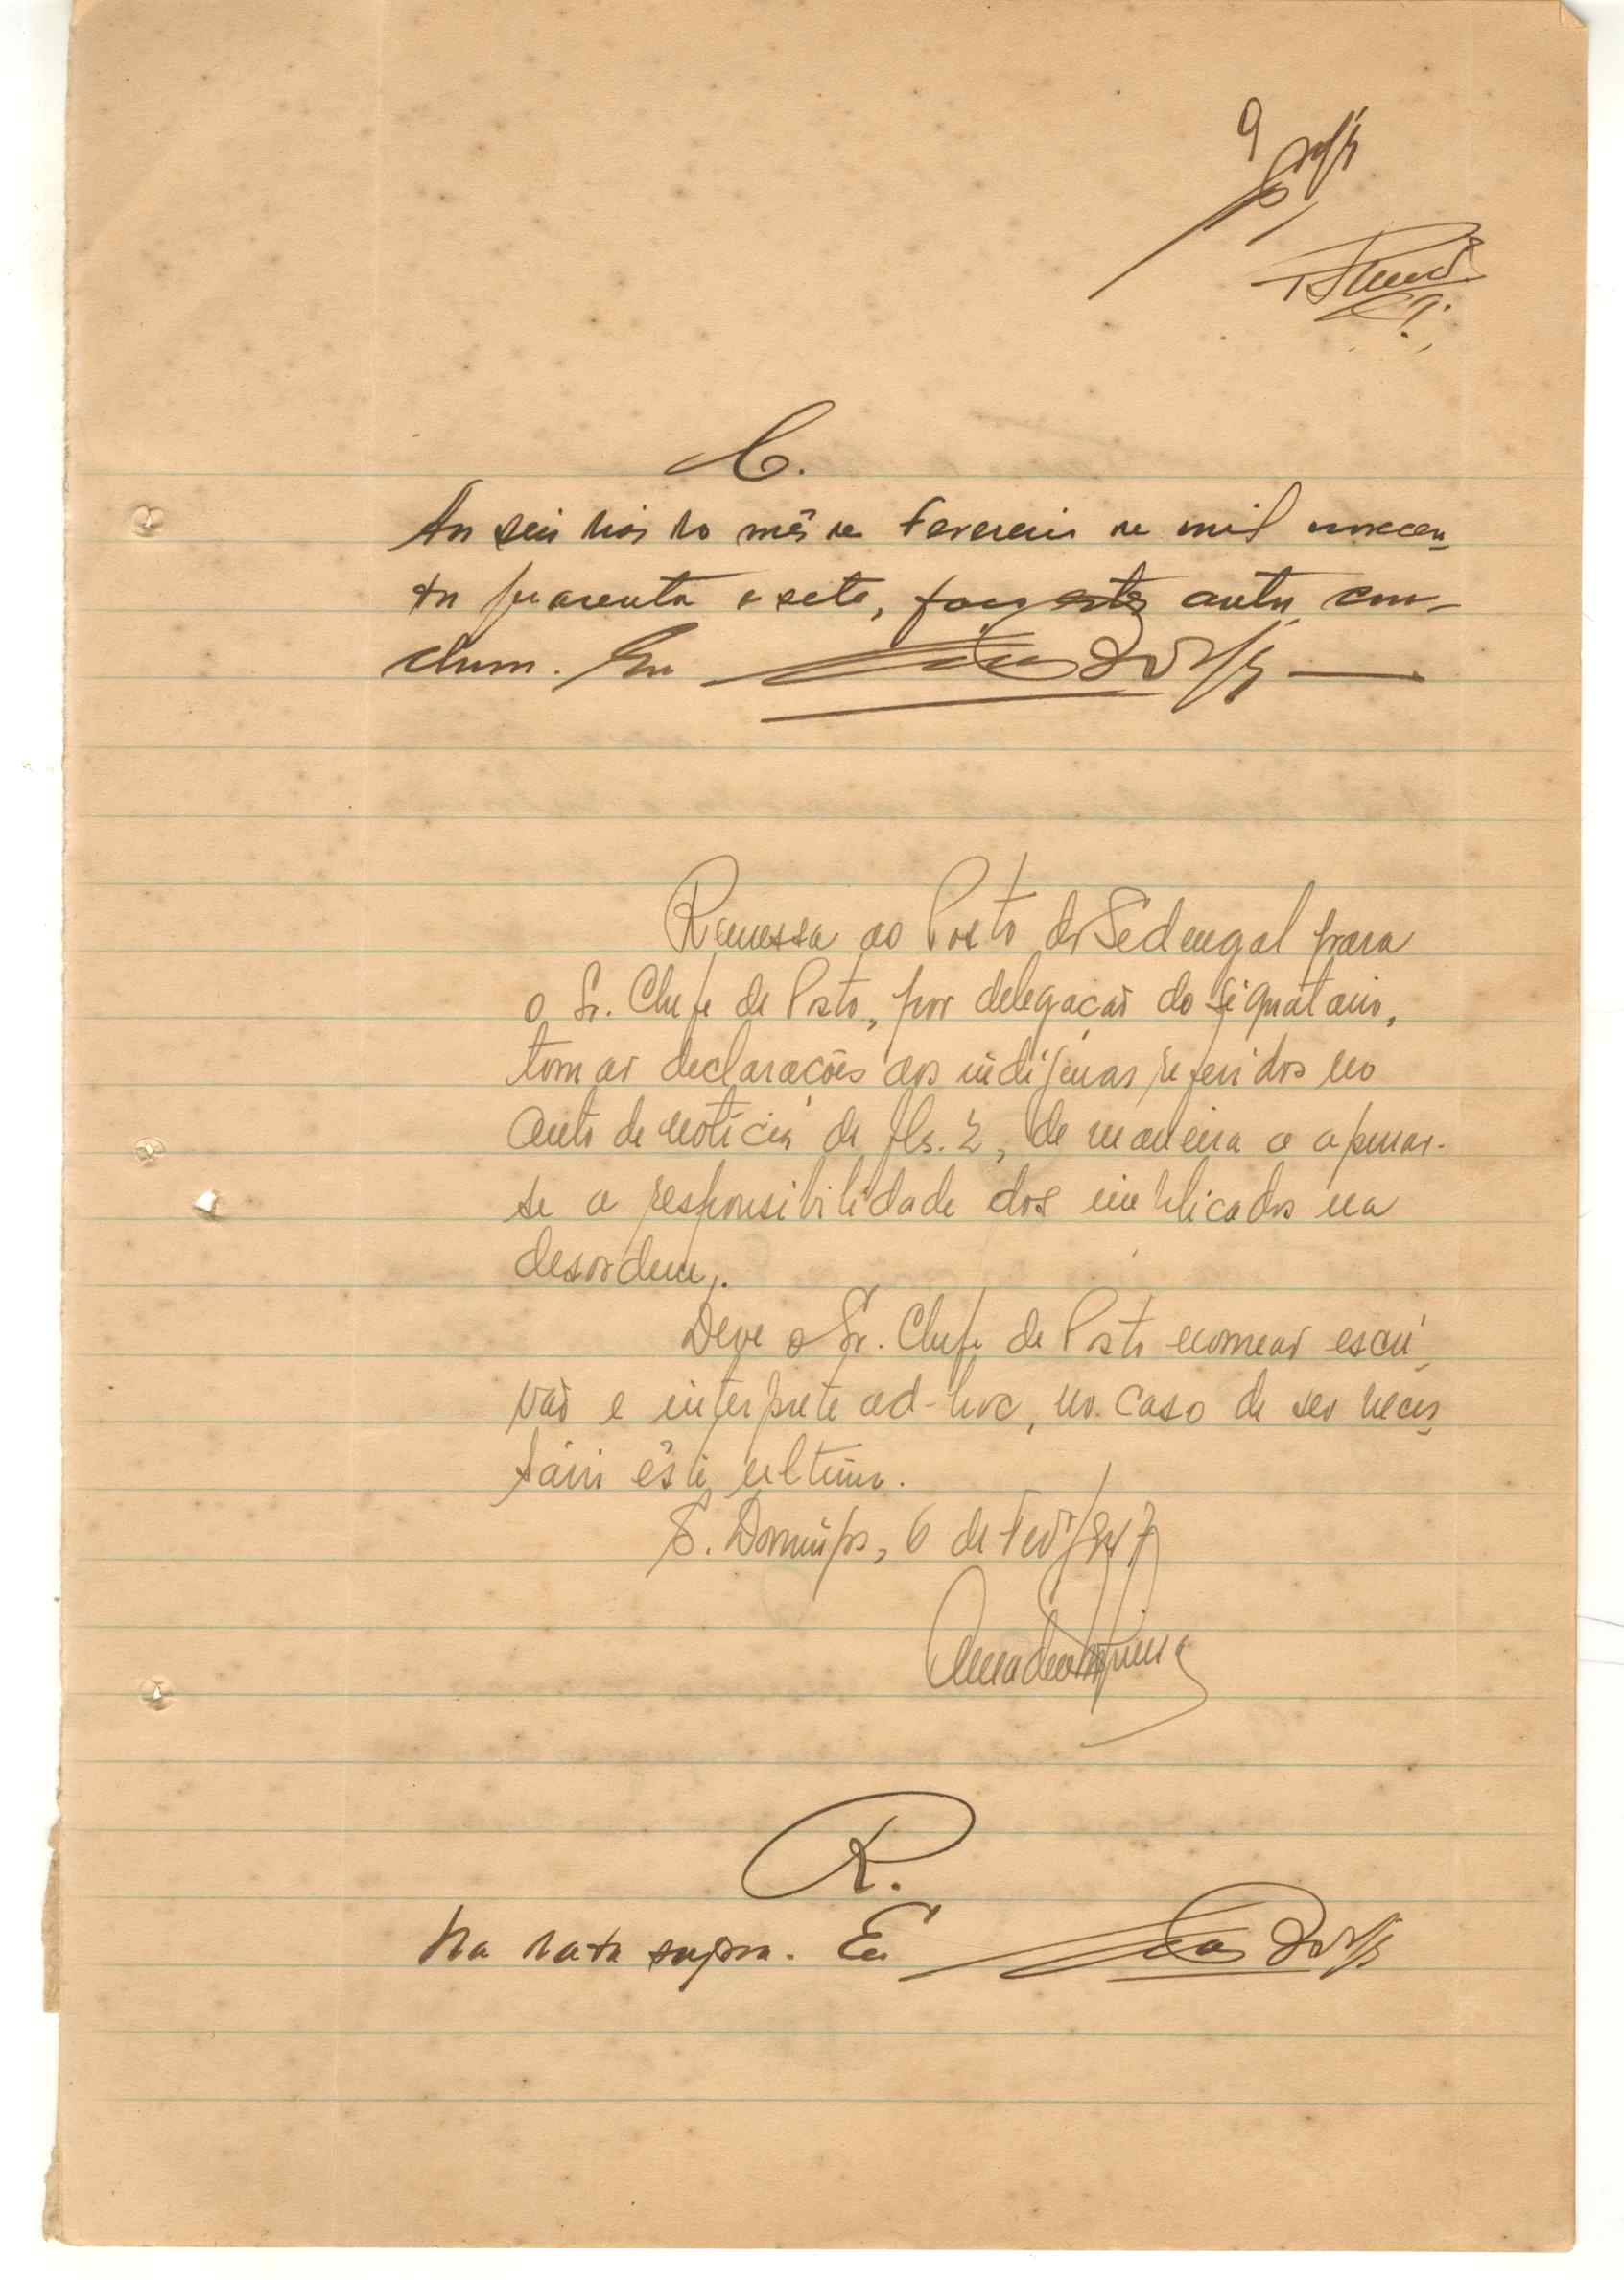 9
C.
Aos seis dias do mês de Fevereiro de mil novecen
tos quarenta e sete, faço estes autos con-
clusos. Eu
Remessa ao Posto de Sedengal para
o Sr. Chefe de Posto, por delegação do signatario,
tomar declarações aos indígenas referidos no
auto de notícia de fls. 2, de maneira a apurar-
se a responsibilidade dos implicados na
desordem.
Deve o Sr. Chefe de Posto nomear escri
vão e interprete ad-hoc, no caso de ser neces
sário êste ultimo.
S. Domingos, 6 de Fevº/947
R.
Na data supra. Eu